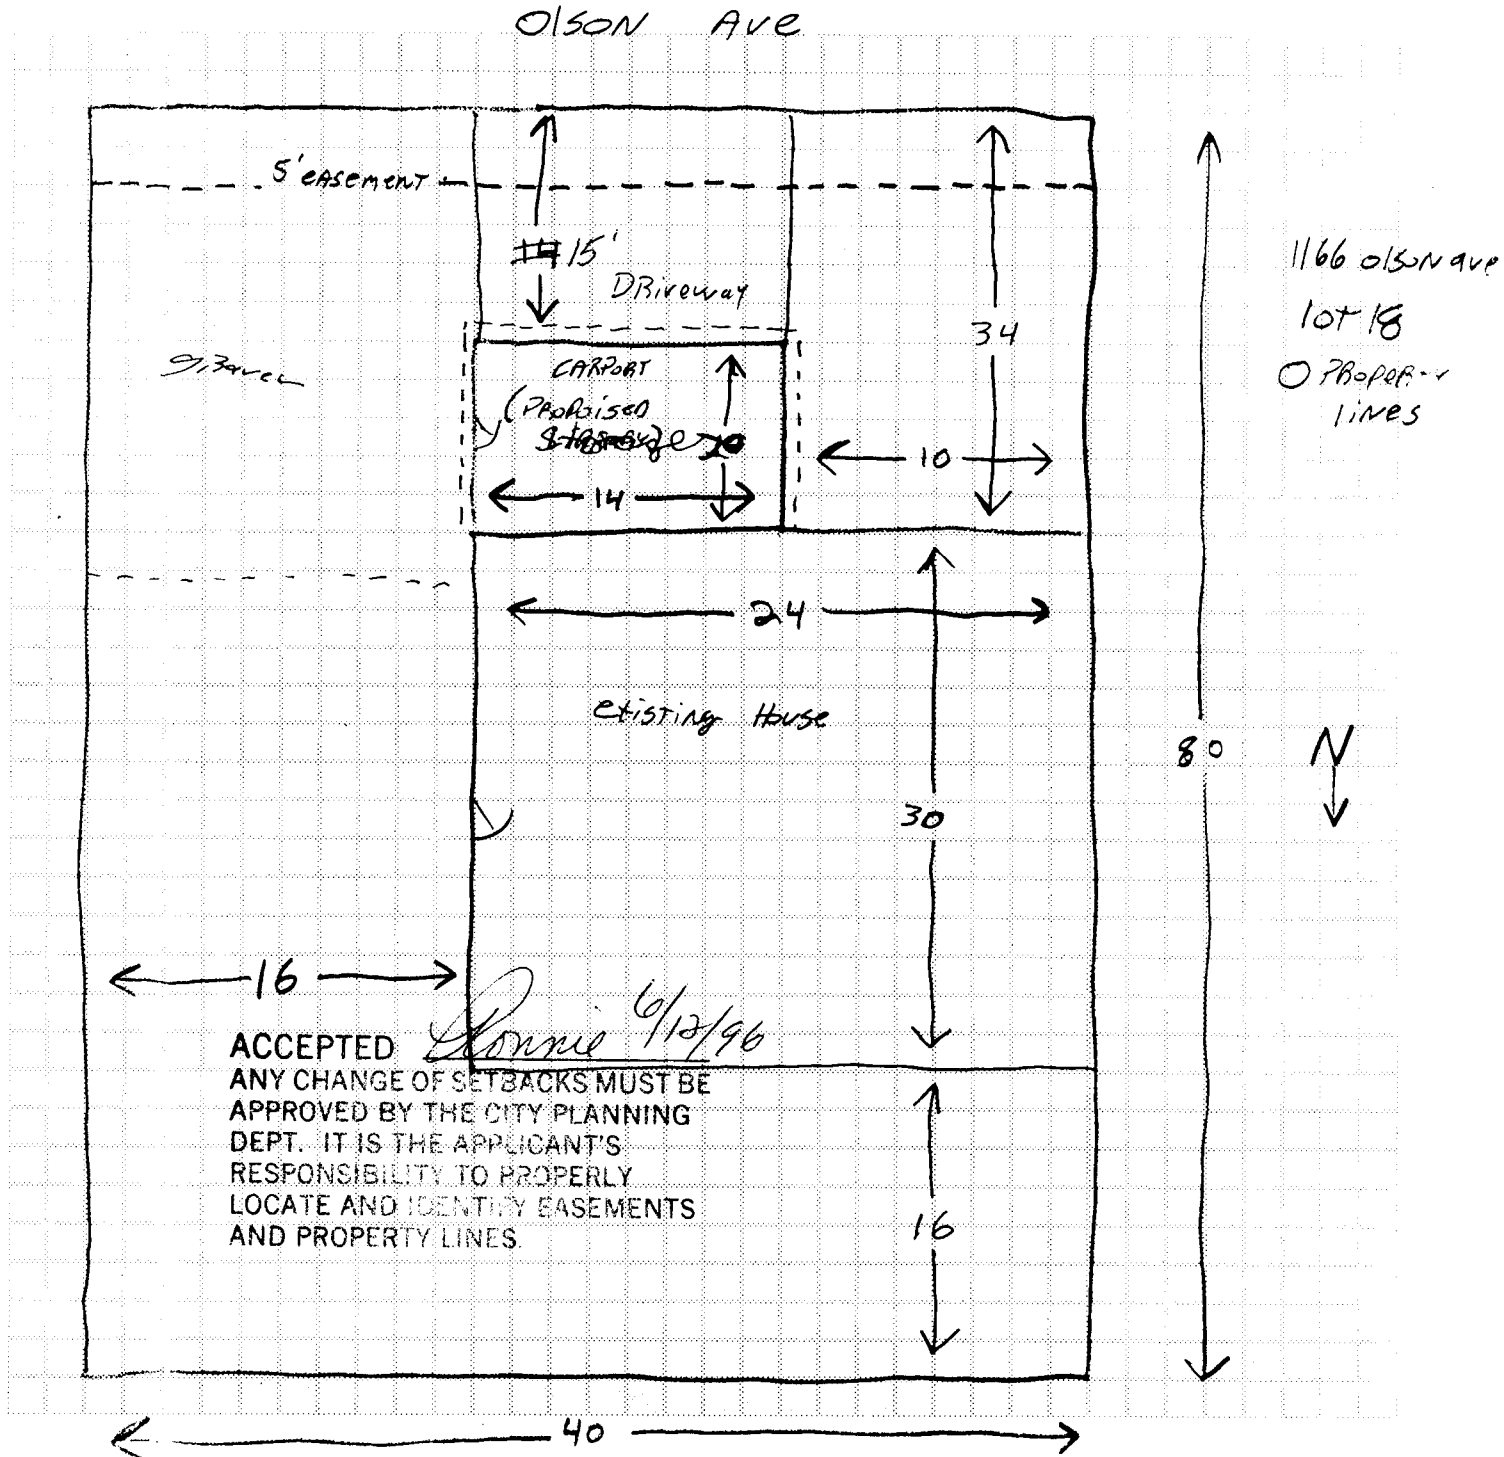 Olson Ave
5' easement
15'
Driveway
34
1166 olson ave
lot 18
O Proper
lines
CARPORT
(Propoised
Storage
20
10
14
24
existing House
80
N
30
16
ACCEPTED Ronnie 6/12/96
ANY CHANGE OF SETBACKS MUST BE
APPROVED BY THE CITY PLANNING
DEPT. IT IS THE APPLICANT'S
RESPONSIBILITY TO PROPERLY
LOCATE AND IDENTIFY EASEMENTS
AND PROPERTY LINES.
16
40